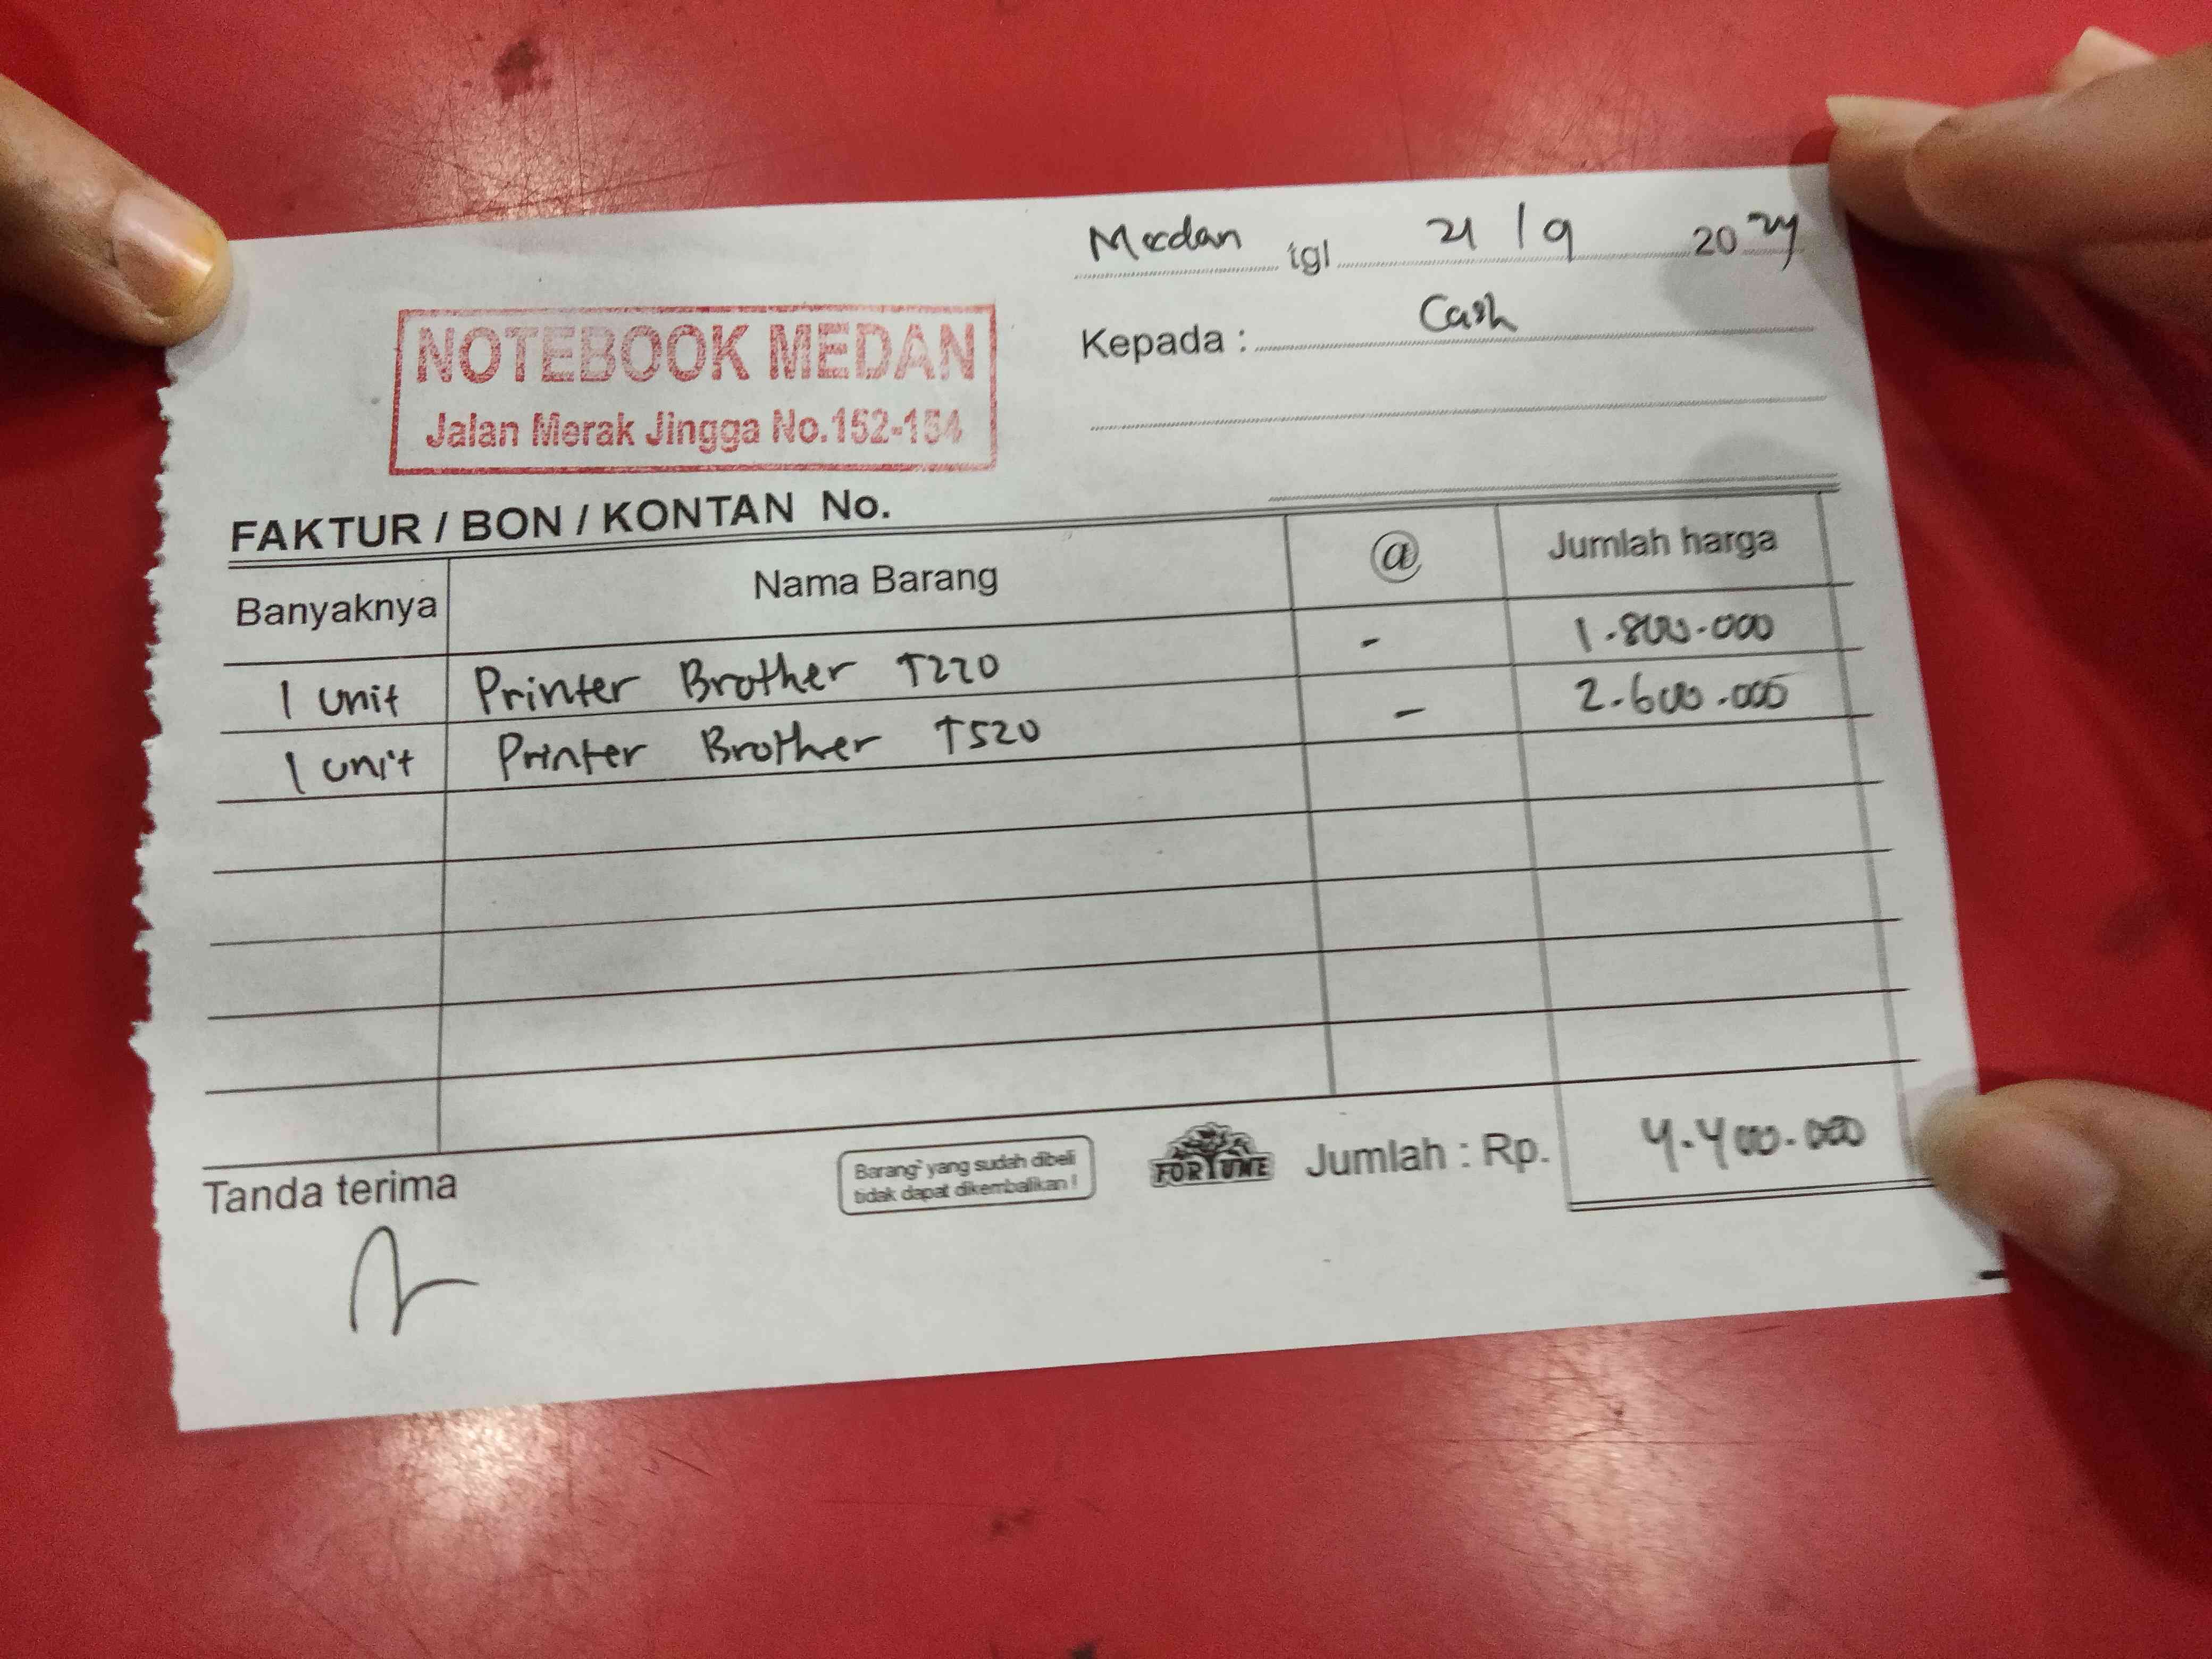 Medan tgl 21/9 2024
NOTEBOOK MEDAN
Jalan Merak Jingga No.152-154
Kepada : Cash
FAKTUR / BON / KONTAN No.
Banyaknya Nama Barang @ Jumlah harga
1 unit Printer Brother T220 - 1.800.000
1 unit Printer Brother T520 - 2.600.000
Tanda terima
Barang² yang sudah dibeli
tidak dapat dikembalikan !
FORTUNE
Jumlah : Rp. 4.400.000